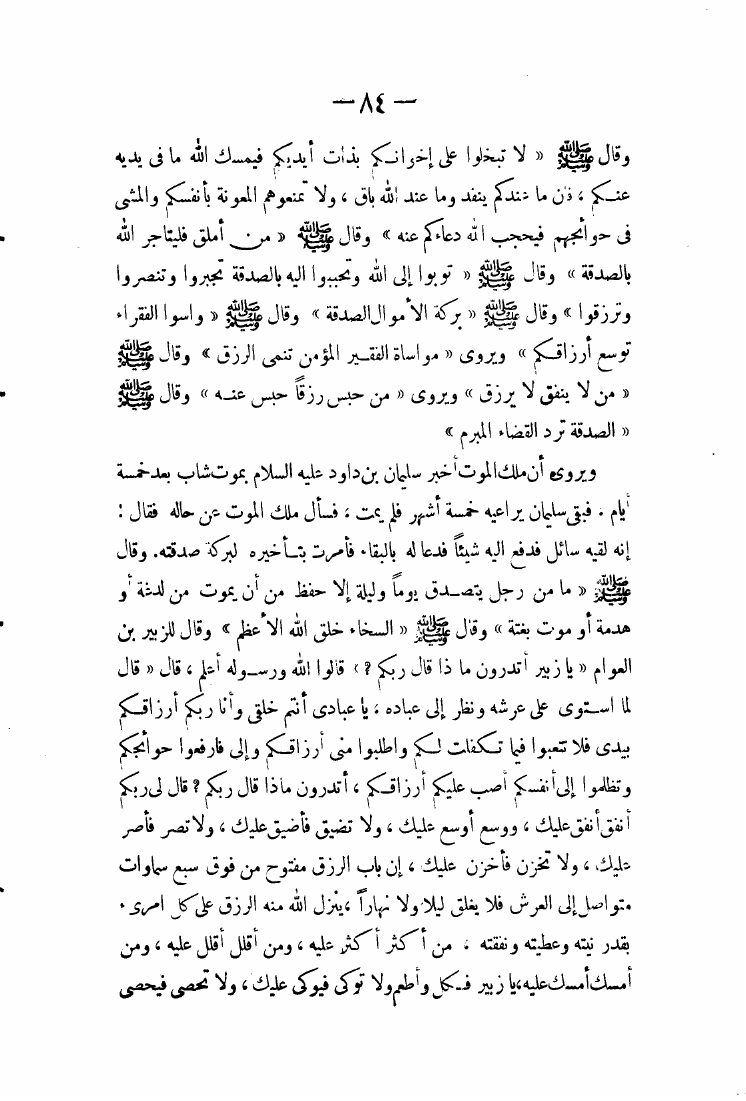 — ٨٤ —
وقال ﷺ « لا تبخلوا على إخوانكم بذات أيديكم فيمسك الله ما فى يديه
عنكم ، فإن ما عندكم ينفد وما عند الله باق ، ولا تمنعوهم المعونة بأنفسكم والمشى
فى حوائجهم فيحجب الله دعاءكم عنه » وقال ﷺ « من أملق فليتاجر الله
بالصدقة » وقال ﷺ « توبوا إلى الله وتحببوا اليه بالصدقة تجبروا وتنصروا
وترزقوا » وقال ﷺ « بركة الأموال الصدقة » وقال ﷺ « واسوا الفقراء
توسع أرزاقكم » ويروى « مواساة الفقير المؤمن تنمى الرزق » وقال ﷺ
« من لا ينفق لا يرزق » ويروى « من حبس رزقاً حبس عنه » وقال ﷺ
« الصدقة ترد القضاء المبرم »
ويروى أن ملك الموت أخبر سليمان بن داود عليه السلام بموت شاب بعد خمسة
أيام . فبقى سليمان يراعيه خمسة أشهر فلم يمت ، فسأل ملك الموت عن حاله فقال :
إنه لقيه سائل فدفع اليه شيئاً فدعا له بالبقاء فأمرت بتأخيره لبركة صدقته. وقال
ﷺ « ما من رجل يتصدق يوماً وليلة إلا حفظ من أن يموت من لدغة أو
هدمة أو موت بغتة » وقال ﷺ « السخاء خلق الله الأعظم » وقال للزبير بن
العوام « يا زبير أتدرون ما ذا قال ربكم ؟ » قالوا الله ورسوله أعلم ، قال « قال
لما استوى على عرشه ونظر إلى عباده ، يا عبادى أنتم خلقى وأنا ربكم أرزاقكم
بيدى فلا تتعبوا فيما تكفلت لكم واطلبوا منى أرزاقكم وإلى فارفعوا حوائجكم
وتظلموا إلى أنفسكم أصب عليكم أرزاقكم ، أتدرون ماذا قال ربكم ؟ قال لى ربكم
أنفق أنفق عليك ، ووسع أوسع عليك ، ولا تضيق فأضيق عليك ، ولا تصر فأصر
عليك ، ولا تخزن فأخزن عليك ، إن باب الرزق مفتوح من فوق سبع سماوات
متواصل إلى العرش فلا يغلق ليلا ولا نهاراً ، ينزل الله منه الرزق على كل امرىء
بقدر نيته وعطيته ونفقته ، من أكثر أكثر عليه ، ومن أقلل أقلل عليه ، ومن
أمسك أمسك عليه ، يا زبير فكل وأطعم ولا توكى فيوكى عليك ، ولا تحصى فيحصى